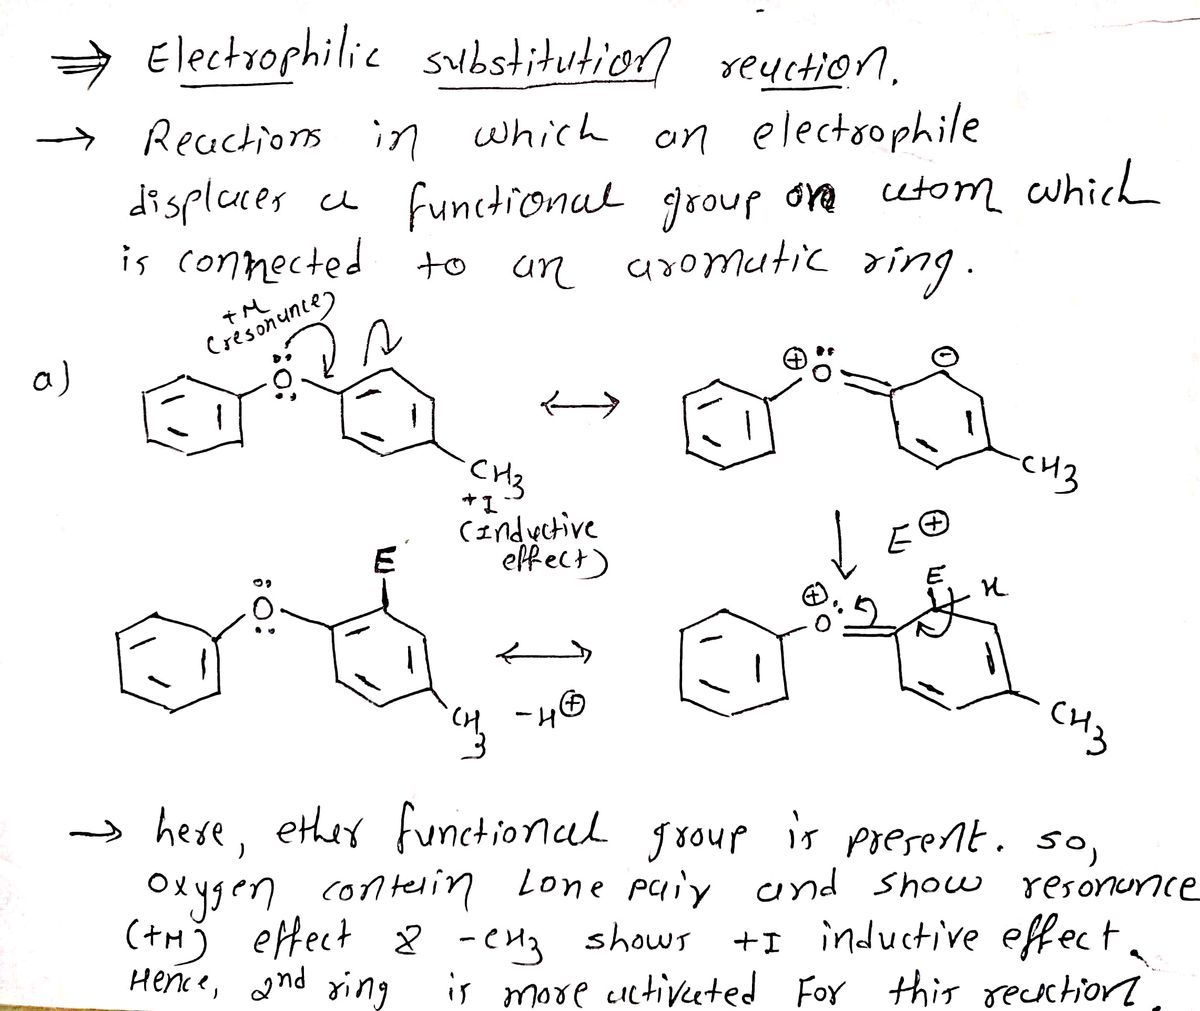 ⇒ Electrophilic substitution reaction.
→ Reactions in which an electrophile
displaces a functional group or atom which
is connected to an aromatic ring.
+M
(resonance)
a)
O
↔
⊕ O
⊖
CH3
+I
(Inductive
effect)
CH3
↓ E⊕
E
O
CH3
↔
-H⊕
⊕ O
E
H
CH3
→ here, ether functional group is present. so,
oxygen contain Lone pair and show resonance
(+M) effect & -CH3 shows +I inductive effect.
Hence, 2nd ring is more activated For this reaction.